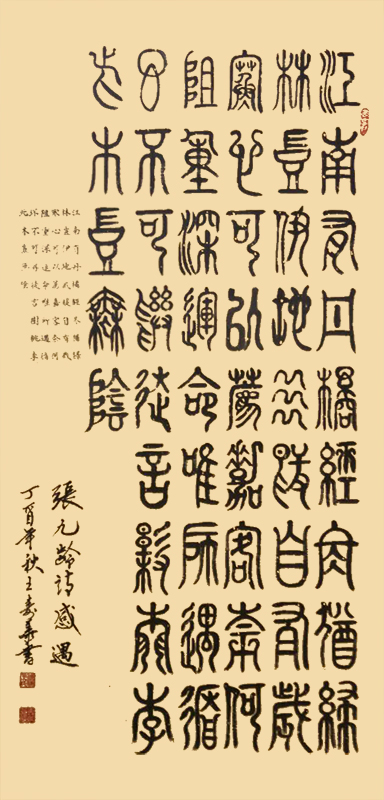 江南有丹橘經冬猶綠
林豈伊地氣暖自有歲
寒心可以薦嘉客奈何
阻重深運命唯所遇循
環不可尋徒言樹桃李
此木豈無陰
江南有丹橘經冬猶綠
林豈伊地氣暖自有歲
寒心可以薦嘉客奈何
阻重深運命唯所遇循
環不可尋徒言樹桃李
此木豈無陰
張九齡詩感遇
丁酉年秋王壽書